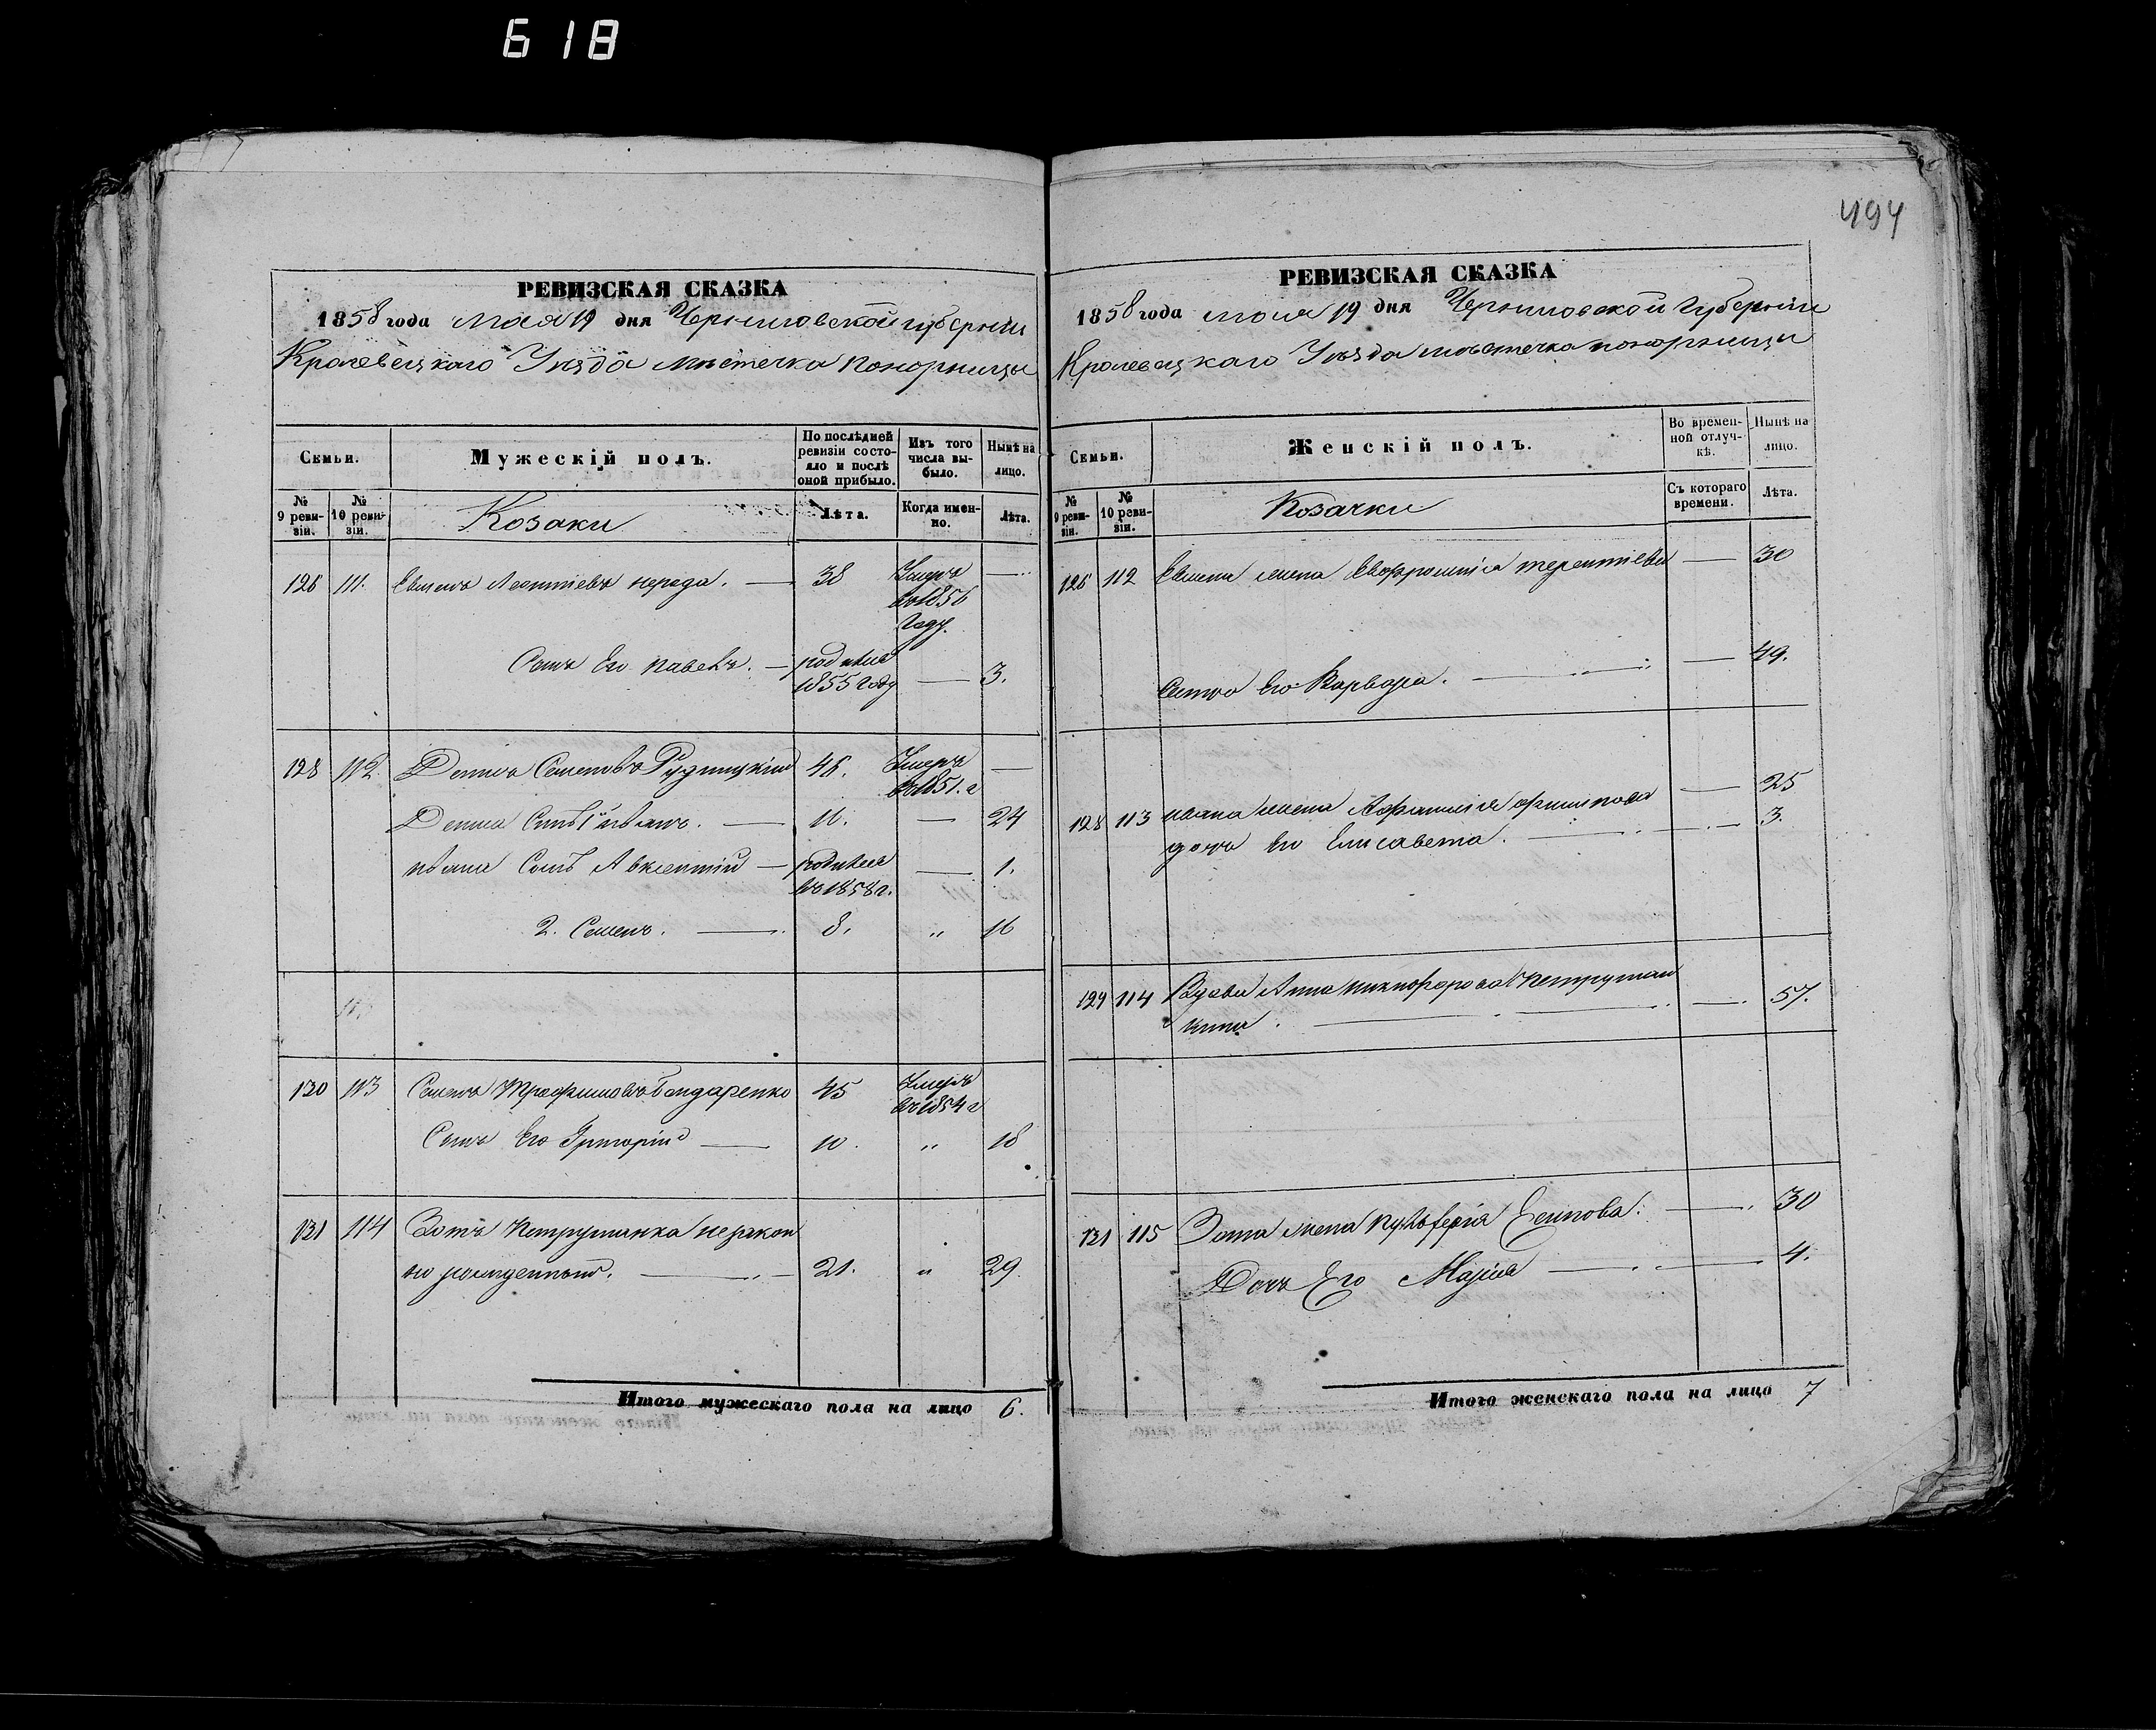 618
РЕВИЗСКАЯ СКАЗКА
1858 года Мая 19 дня Черниговской губерніи
Кролевецкаго Уѣзда Мѣстечка Понорницы
Семьи.
Мужескій полъ.
По послѣдней ревизіи состояло и послѣ оной прибыло.
Изъ того числа выбыло.
Нынѣ на лицо.
№ 9 ревизіи.
№ 10 ревизіи.
Козаки
Лѣта.
Когда именно.
Лѣта.
126 111. Леонтіевъ . — 38 Умеръ —
въ 1856
году.
Сынъ Его Павелъ. — родился
1855 году — 3.
128 112. Семеновъ Рудницкій 46. Умеръ —
въ 1851.г
Сынъ Иванъ. — 16. — 24
Ивана Сынъ Авксентій — родился — 1.
въ 1858 г.
2. Семенъ. — 8. „ 16
130 113 Семенъ Трофимовъ Бондаренко 45 Умеръ
въ 1854 г
Сынъ Его Григорій — 10. „ 18
131 114 Зотъ Петрушанка незакон
но рожденный. — 21. „ 29
Итого мужескаго пола на лицо 6.
494
РЕВИЗСКАЯ СКАЗКА
1858 года Мая 19 дня Черниговской Губерніи
Кролевецкаго Уѣзда мѣстечка Понорницы
Семьи.
Женскій полъ.
Во временной отлучкѣ.
Нынѣ на лицо.
№ 9 ревизіи.
№ 10 ревизіи.
Козачки
Съ котораго времени.
Лѣта.
126 112 жена Евфросинія Терентіева — 30
Его Варвара. — 49.
128 113 Ивана жена Афанасія Филипова — 25
дочь Его Елисавета. — 3.
129 114 Вдова Анна Никифорова Петрушан
кина. — 57.
131 115 Зота жена Пульферія Есипова. — 30
Дочь Его Марія — 4.
Итого женскаго пола на лицо 7